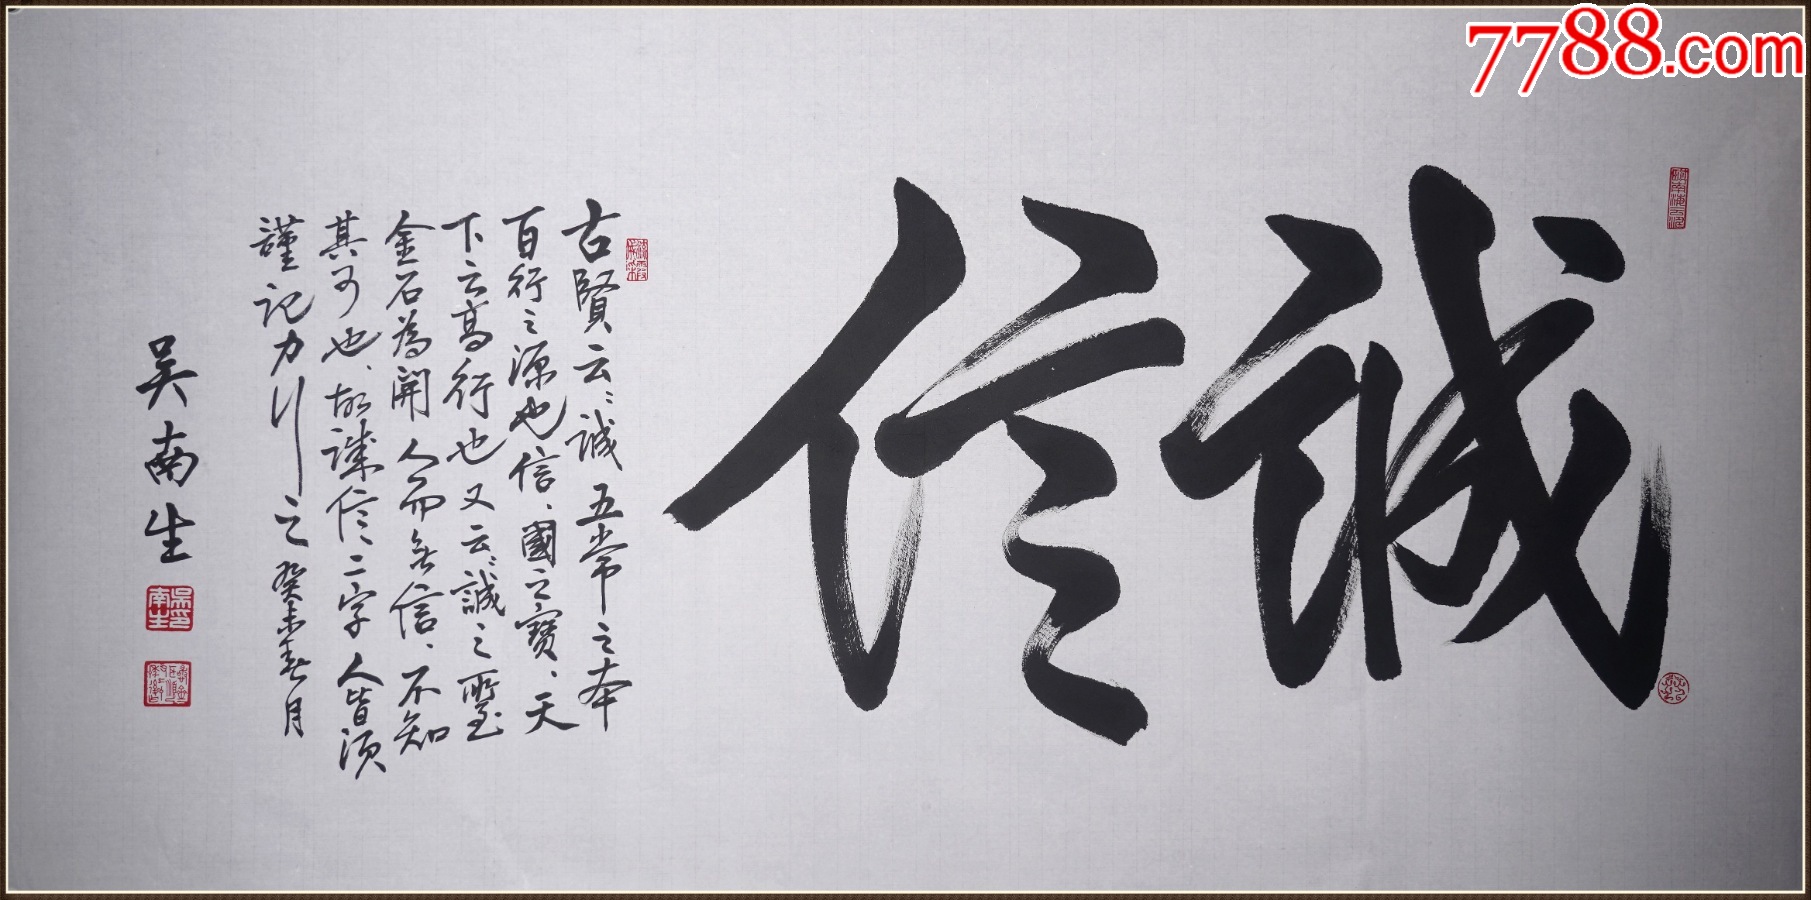 7788.com
誠信
古賢云：誠五常之本
百行之源也信、國之寶、天
下云高行也又云：誠之所至
金石為開人而無信、不知
其可也、故誠信二字人皆須
謹記力行之癸未春月
吴南生